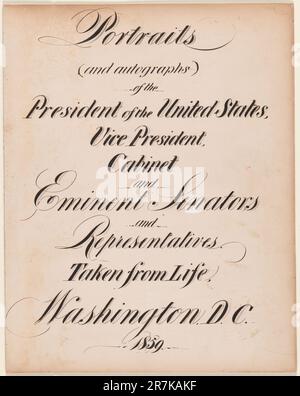 Portraits
(and autographs)
of the
President of the United States,
Vice President,
Cabinet
and
Eminent Senators
and
Representatives.
Taken from Life,
Washington, D.C.
1859.
alamy
Image ID: 2R7KAKF
www.alamy.com